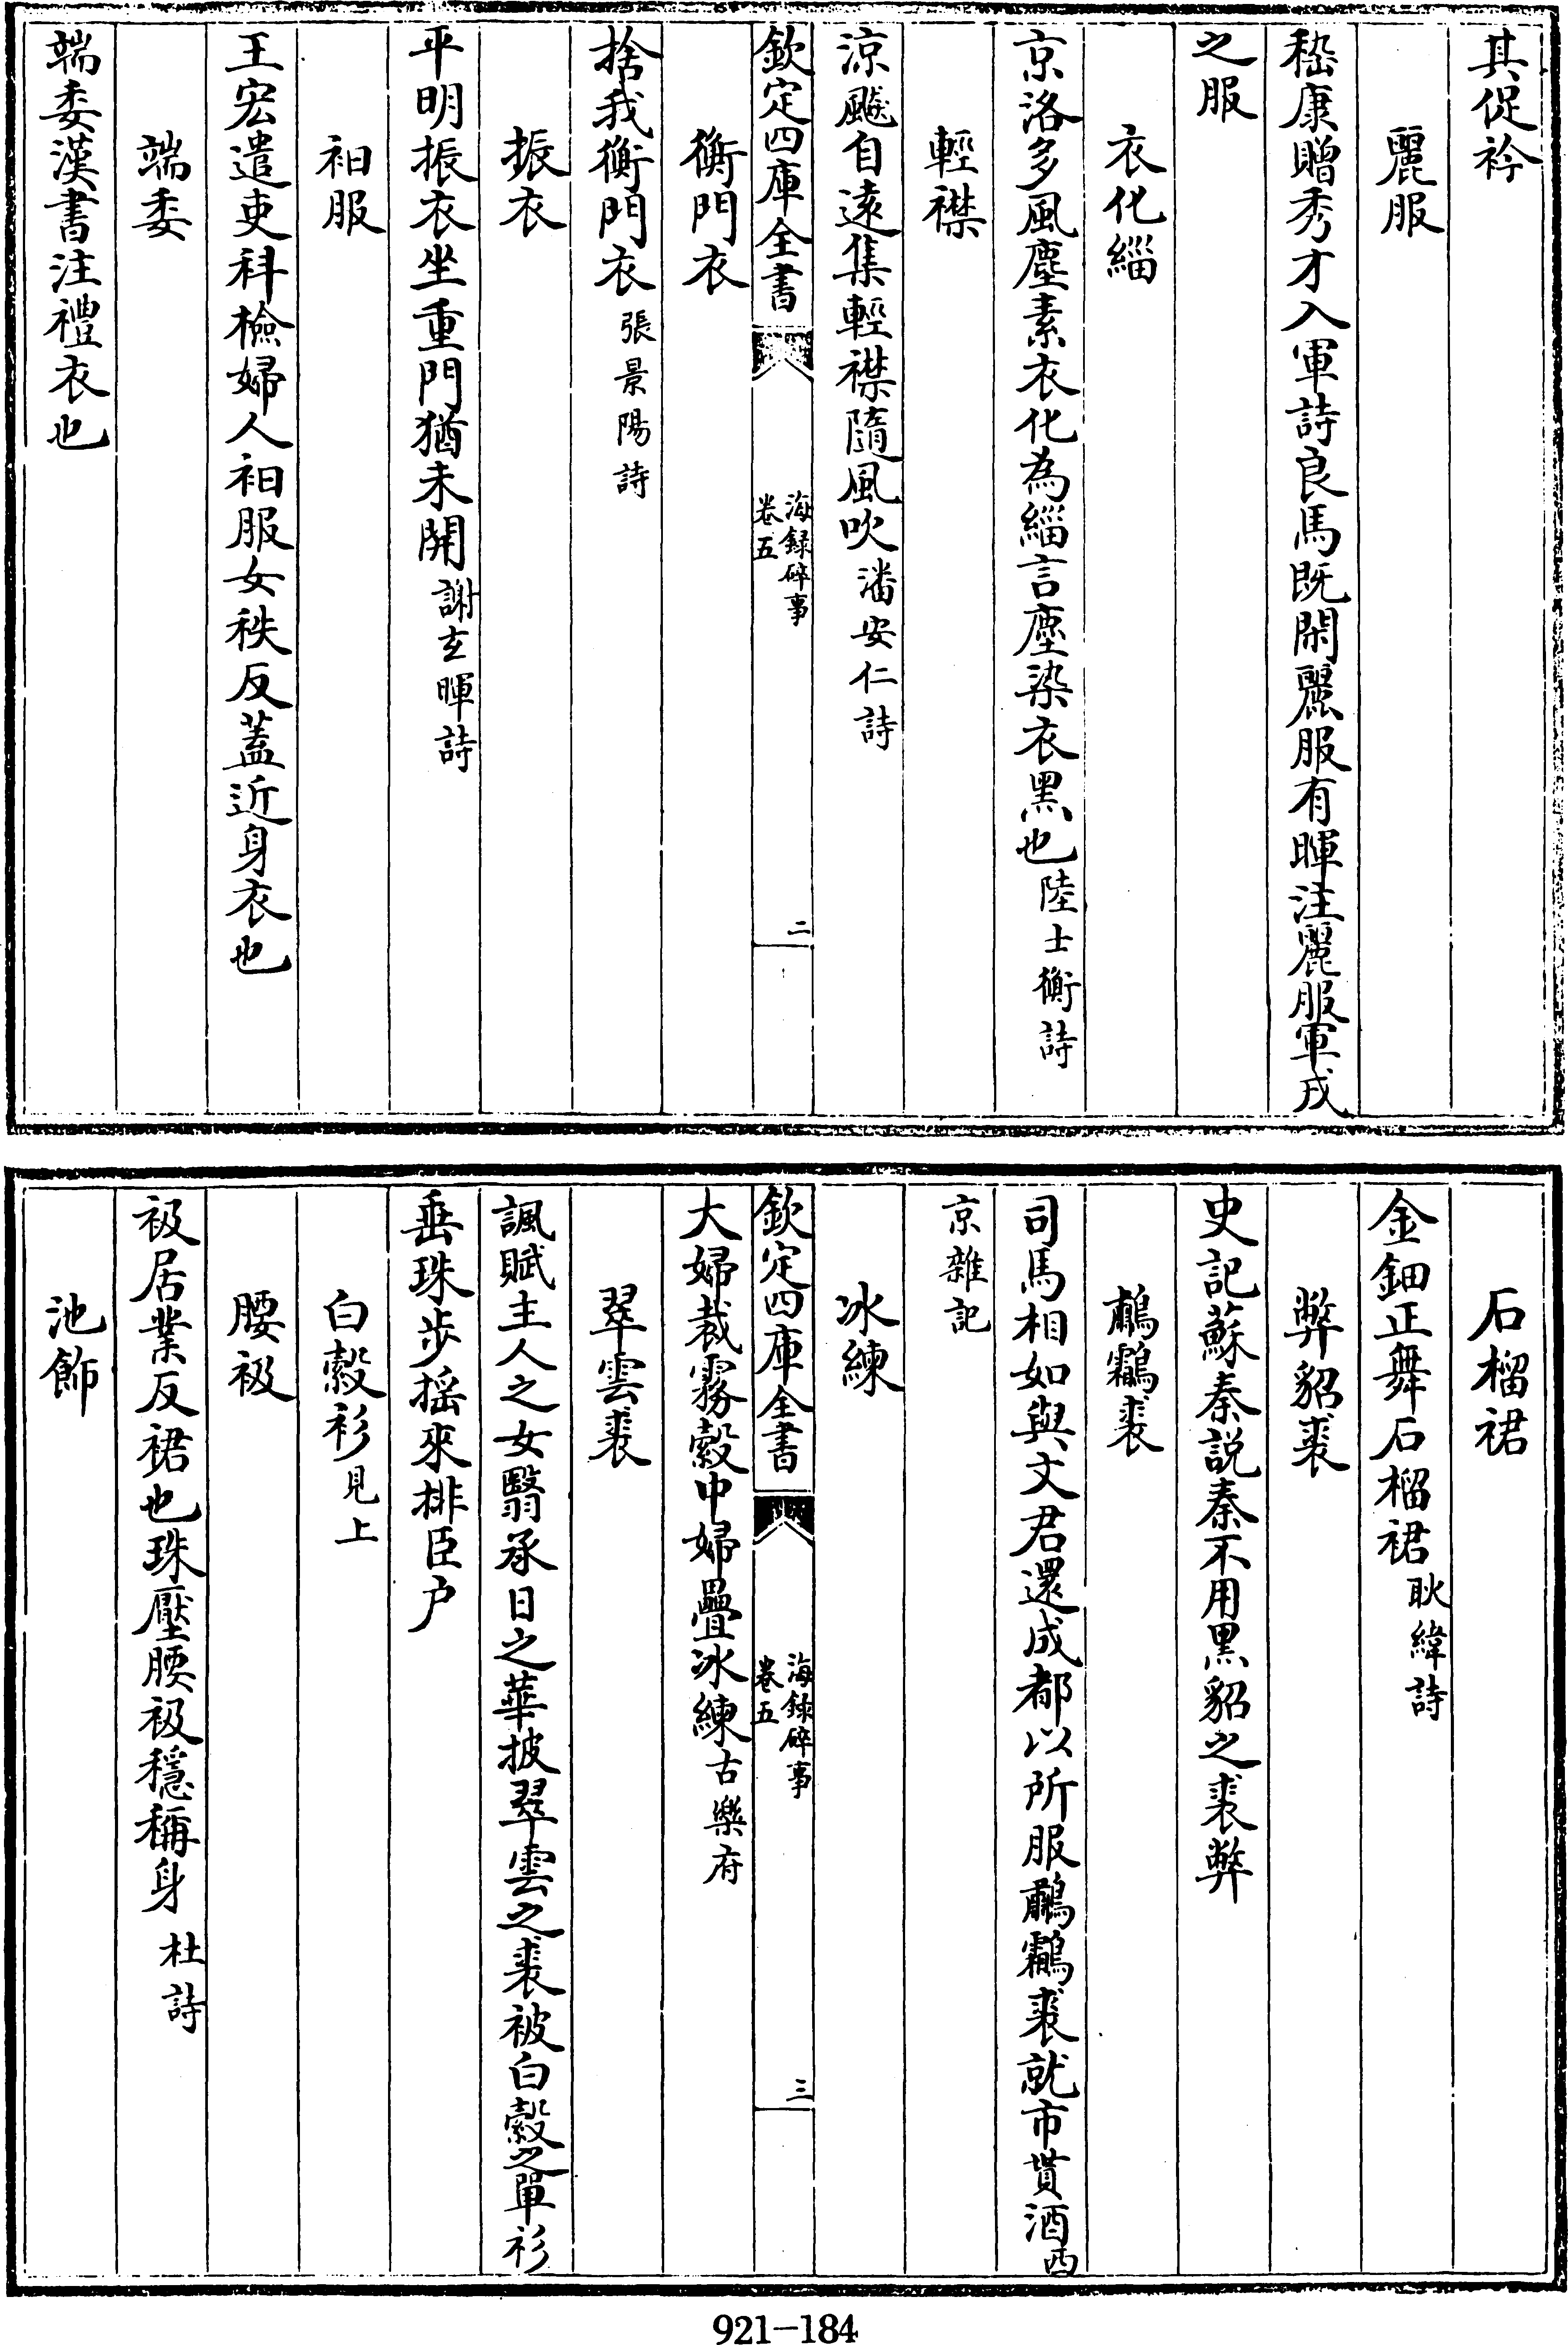 其促衿
麗服
嵇康贈秀才入軍詩良馬既閑麗服有暉注麗服軍戎
之服
衣化緇
京洛多風塵素衣化為緇言塵染衣黑也陸士衡詩
輕襟
涼飈自逺集輕襟隨風吹潘安仁詩
欽定四庫全書
海録碎事
卷五
二
衡門衣
捨我衡門衣張景陽詩
振衣
平明振衣坐重門猶未開謝玄暉詩
衵服
王宏遣吏科檢婦人衵服女秩反蓋近身衣也
端委
端委漢書注禮衣也
石榴裙
金鈿正舞石榴裙耿緯詩
弊貂裘
史記蘇秦説秦不用黒貂之裘弊
鷫鸘裘
司馬相如與文君還成都以所服鷫鸘裘就市貰酒西
京雜記
冰練
欽定四庫全書
海録碎事
卷五
三
大婦裁霧縠中婦疊冰練古樂府
翠雲裘
諷賦主人之女翳承日之華披翠雲之裘被白縠之單衫
垂珠步摇來排臣户
白縠衫見上
腰衱
衱居業反裾也珠壓腰衱穩稱身杜詩
池飾
921-184